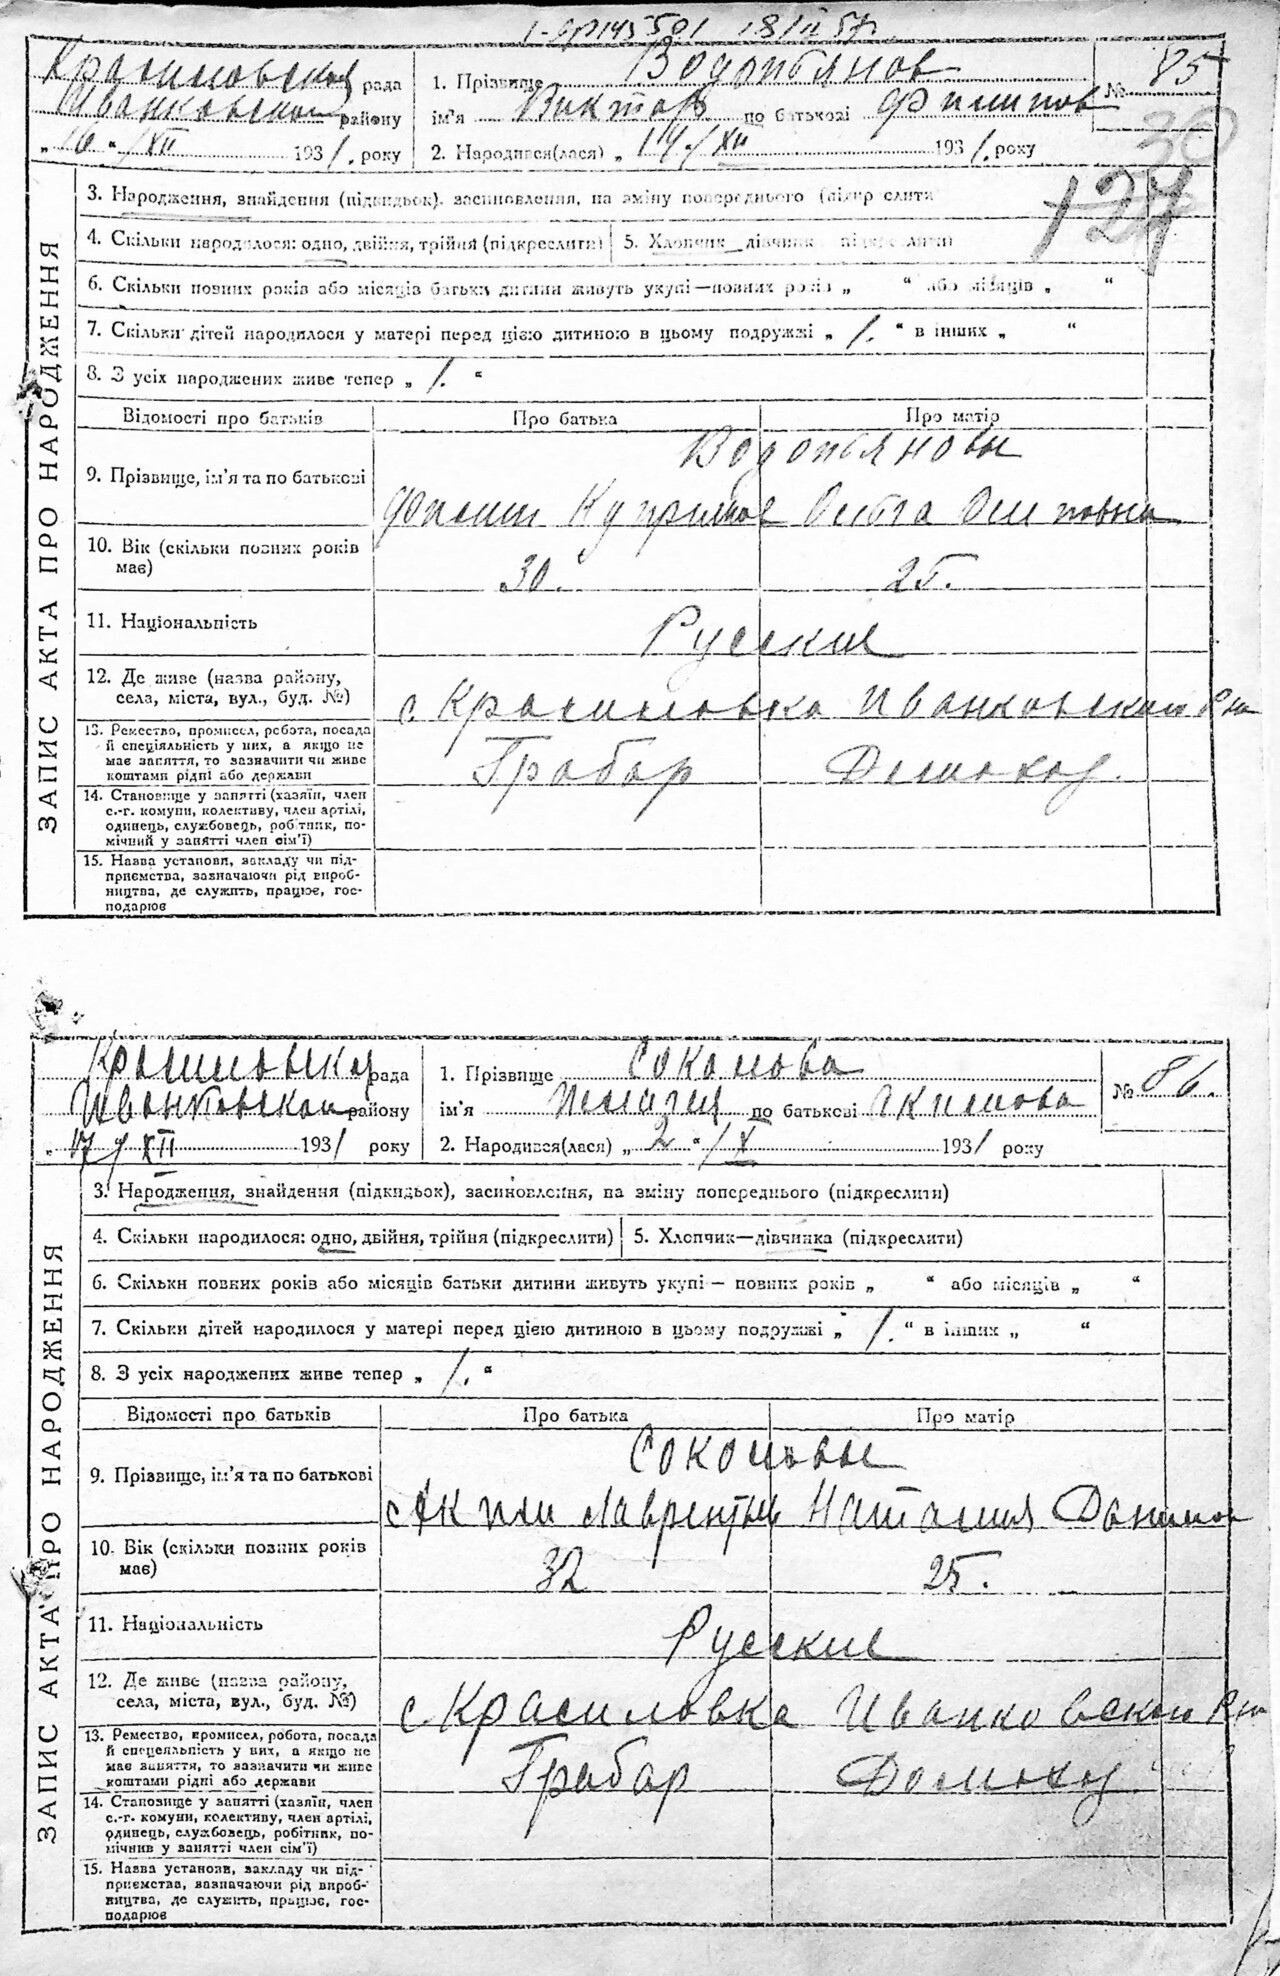 181145501 18/II 57г.
Красиловская рада
Иванковского району
„ 16 “ /XII 1931. року
1. Прізвище Водопьянов
ім'я Виктор по батькові Филипов
2. Народився(лася) „ 14. /XII 1931. року
№ 85
30
127
ЗАПИС АКТА ПРО НАРОДЖЕННЯ
3. Народження, знайдення (підкидьок), засиновлення, на зміну попереднього (підкреслити)
4. Скільки народилося: одно, двійня, трійня (підкреслити) 5. Хлопчик—дівчинка (підкреслити)
6. Скільки повних років або місяців батьки дитини живуть укупі—повних років „ “ або місяців „ “
7. Скільки дітей народилося у матері перед цією дитиною в цьому подружжі „ 1. “ в інших „ “
8. З усіх народжених живе тепер „ 1. “
Відомості про батьків Про батька Про матір
9. Прізвище, ім'я та по батькові
Водопьяновы
Филип Куприянов Ольга Осиповна
10. Вік (скільки повних років
має)
30. 25.
11. Національність Русские
12. Де живе (назва району,
села, міста, вул., буд. №)
с Красиловка Иванковского Р на
13. Ремество, промисел, робота, посада
й спеціяльність у них, а якщо не
має заняття, то зазначити чи живе
коштами рідні або держави
Грабар Домохоз.
14. Становище у занятті (хазяїн, член
с.-г. комуни, колективу, член артілі,
одинець, службовець, робітник, по-
мічний у занятті член сім'ї)
15. Назва установи, закладу чи під-
приємства, зазначаючи рід вироб-
ництва, де служить, працює, гос-
подарює
Красиловская рада
Иванковского району
„ 17 “ / XII 1931 року
1. Прізвище Соколова
ім'я Пелагея по батькові Акимова
2. Народився(лася) „ 2 “ / X 1931 року
№ 86.
ЗАПИС АКТА ПРО НАРОДЖЕННЯ
3. Народження, знайдення (підкидьок), засиновлення, на зміну попереднього (підкреслити)
4. Скільки народилося: одно, двійня, трійня (підкреслити) 5. Хлопчик—дівчинка (підкреслити)
6. Скільки повних років або місяців батьки дитини живуть укупі — повних років „ “ або місяців „ “
7. Скільки дітей народилося у матері перед цією дитиною в цьому подружжі „ 1. “ в інших „ “
8. З усіх народжених живе тепер „ 1. “
Відомості про батьків Про батька Про матір
9. Прізвище, ім'я та по батькові
Соколовы
Аким Лаврентьев Наталия Данилов
10. Вік (скільки повних років
має)
32 25.
11. Національність Русские
12. Де живе (назва району,
села, міста, вул., буд. №)
с Красиловка Иванковского Р на
13. Ремество, промисел, робота, посада
й спецеяльність у них, а якщо не
має заняття, то зазначити чи живе
коштами рідні або держави
Грабар Домохоз
14. Становище у занятті (хазяїн, член
с.-г. комуни, колективу, член артілі,
одинець, службовець, робітник, по-
мічнив у занятті член сім'ї)
15. Назва установи, закладу чи під-
приємства, зазначаючи рід вироб-
ництва, де служить, працює, гос-
подарює